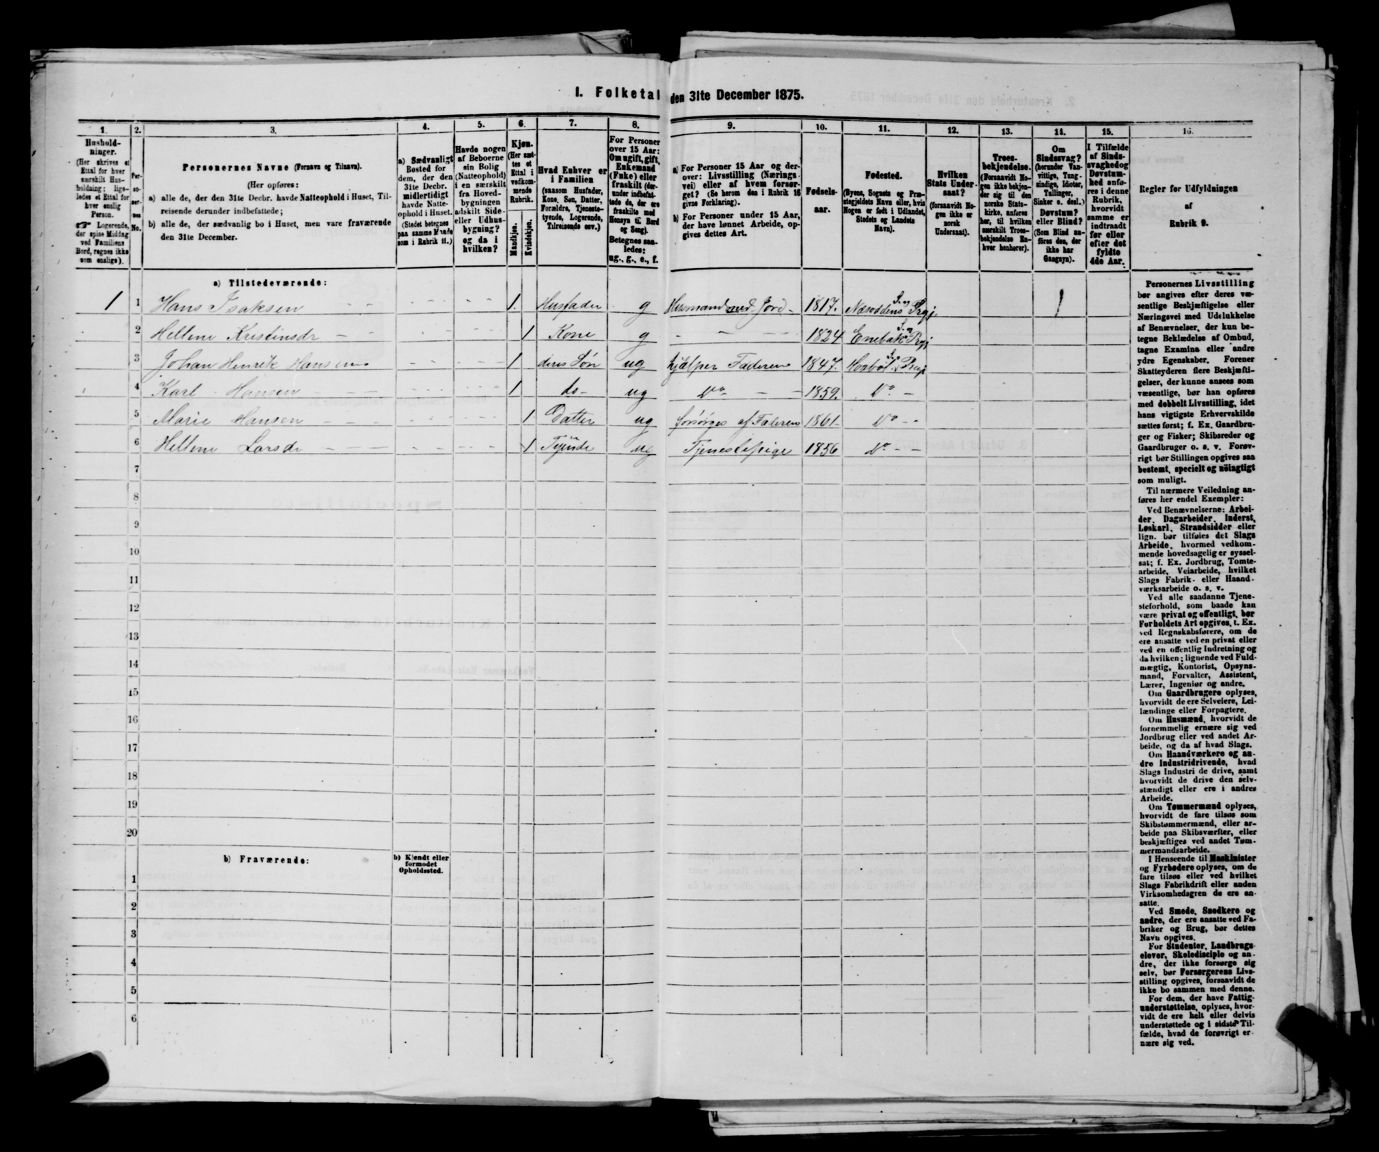 I. Folketal
den 31te December 1875.
1.
Hushold-
ninger.
(Her skrives et
Ettal for hver
særskilt Hus-
holdning; lige-
ledes et Ettal for
hver enslig
Person.
Logerende,
der spise Middag
ved Familiens
Bord, regnes ikke
som enslige).
2.
Per-
so-
ner-
nes
No.
3.
Personernes Navne (Fornavn og Tilnavn).
(Her opføres:
a) alle de, der den 31te Decbr. havde Natteophold i Huset, Til-
reisende derunder indbefattede;
b) alle de, der sædvanlig bo i Huset, men vare fraværende
den 31te December.
4.
a) Sædvanligt
Bosted for
dem, der den
31te Decbr.
midlertidigt
havde Natte-
ophold i Huset.
(Stedet betegnes
paa samme Maade
som i Rubrik 11.)
5.
Havde nogen
af Beboerne
sin Bolig
(Natteophold)
i en særskilt
fra Hoved-
bygningen
adskilt Side-
eller Udhus-
bygning?
og da i
hvilken?
6.
Kjøn.
(Her sæt-
tes et
Ettal i
vedkom-
mende
Rubrik.
Mandkjøn.
Kvindekjøn.
7.
Hvad Enhver er
i Familien
(saasom Husfader,
Kone, Søn, Datter,
Forældre, Tjeneste-
tyende, Logerende,
Tilreisende osv.)
8.
For Personer
over 15 Aar:
Om ugift, gift,
Enkemand
(Enke) eller
fraskilt (der-
under indbefat-
tede de, der ere
fraskilte med
Hensyn til Bord
og Seng).
Betegnes saa-
ledes:
ug., g., e., f.
9.
a) For Personer 15 Aar og der-
over: Livsstilling (Nærings-
vei) eller af hvem forsør-
get? (Se herom den i Rubrik 16
givne Forklaring).
b) For Personer under 15 Aar,
der have lønnet Arbeide, op-
gives dettes Art.
10.
Fødsels-
aar.
11.
Fødested.
(Byens, Sognets og Præ-
stegjeldets Navn eller, hvis
Nogen er født i Udlandet,
Stedets og Landets
Navn).
12.
Hvilken
Stats Under-
saat?
(forsaavidt No-
gen ikke er
norsk
Undersaat).
13.
Troes-
bekjendelse.
(Forsaavidt No-
gen ikke bekjen-
der sig til den
norske Stats-
kirke, anføres
her, til hvilken
særskilt Troes-
bekjendelse Ka-
hver henhører).
14.
Om
Sindssvag?
(herunder Van-
vittige, Tung-
sindige, Idioter,
Tullinger,
Sinker o. desl.)
Døvstum?
eller Blind?
(Som Blind an-
føres den, der
ikke har
Gangsyn).
15.
I Tilfælde
af Sinds-
svaghed og
Døvstum-
hed anfø-
res i denne
Rubrik,
hvorvidt
samme er
indtraadt
før eller
efter det
fyldte
4de Aar.
16.
Regler for Udfyldningen
af
Rubrik 9.
a) Tilstedeværende:
1 1 Hans Isaksen 1 Husfader g Husmand med Jord 1817. Næsoddens Sogn Prgj 1
2 Hellene Kristinsdr 1 Kone g 1824 Enebak Sogn Prgj
3 Johan Henrik Hansen 1 deres Søn ug hjælper Faderen 1847. Prgj
4 Karl Hansen 1 do ug Do 1859. Do
5 Marie Hansen 1 Datter ug forsørges af Faderen 1861 Do
6 Hellene Larsdr 1 Tyende ug Tjenestepige 1856 Do
7
8
9
10
11
12
13
14
15
16
17
18
19
20
b) Fraværende:
b) Kjendt eller
formodet
Opholdssted.
1
2
3
4
5
6
Personernes Livsstilling
bør angives efter deres væ-
sentlige Beskjæftigelse eller
Næringsvei med Udelukkelse
af Benævnelser, der kun be-
tegne Beklædelse af Ombud,
tagne Examina eller andre
ydre Egenskaber. Forener
Skatteyderen flere Beskjæfti-
gelser, der kunne ansees som
væsentlige, bør han opføres
med dobbelt Livsstilling, idet
hans vigtigste Erhvervskilde
sættes først; f. Ex. Gaardbru-
ger og Fisker; Skibsreder og
Gaardbruger o. s. v. Forøv-
rigt bør Stillingen opgives saa
bestemt, specielt og nøiagtigt
som muligt.
Til nærmere Veiledning an-
føres her endel Exempler:
Ved Benævnelserne: Arbei-
der, Dagarbeider, Inderst,
Løskarl, Strandsidder eller
lign. bør tilføies det Slags
Arbeide, hvormed vedkom-
mende hovedsagelig er syssel-
sat; f. Ex. Jordbrug, Tomte-
arbeide, Veiarbeide, hvilket
Slags Fabrik- eller Haand-
værksarbeide o. s. v.
Ved alle saadanne Tjene-
steforhold, som baade kan
være privat og offentligt, bør
Forholdets Art opgives, t. Ex.
ved Regnskabsførere, om de
ere ansatte ved en privat eller
ved en offentlig Indretning og
da hvilken; lignende ved Fuld-
mægtig, Kontorist, Opsyns-
mand, Forvalter, Assistent,
Lærer, Ingeniør og andre.
Om Gaardbrugere oplyses,
hvorvidt de ere Selveiere, Lei-
lændinge eller Forpagtere.
Om Husmænd, hvorvidt de
fornemmelig ernære sig ved
Jordbrug eller ved andet Ar-
beide, og da af hvad Slags.
Om Haandværkere og an-
dre Industridrivende, hvad
Slags Industri de drive, samt
hvorvidt de drive den selv-
stændigt eller ere i andres
Arbeide.
Om Tømmermænd oplyses,
hvorvidt de fare tilsøs som
Skibstømmermænd, eller ar-
beide paa Skibsværfter, eller
beskjæftiges ved andet Tøm-
mermandsarbeide.
I Henseende til Maskinister
og Fyrbødere oplyses, om de
fare tilsøs eller ved hvilket
Slags Fabrikdrift eller anden
Virksomhedsgren de ere an-
satte.
Ved Smede, Snedkere og
andre, der ere ansatte ved Fa-
briker og Brug, bør dettes
Navn opgives.
For Studenter, Landbrugs-
elever, Skoledisciple og an-
dre, der ikke forsørge sig
selv, bør Forsørgerens Livs-
stilling opgives, forsaavidt de
ikke bo sammen med denne.
For dem, der have Fattig-
understøttelse, oplyses, hvor-
vidt de ere helt eller delvis
understøttede og i sidste Til-
fælde, hvad de forøvrigt er-
nære sig ved.